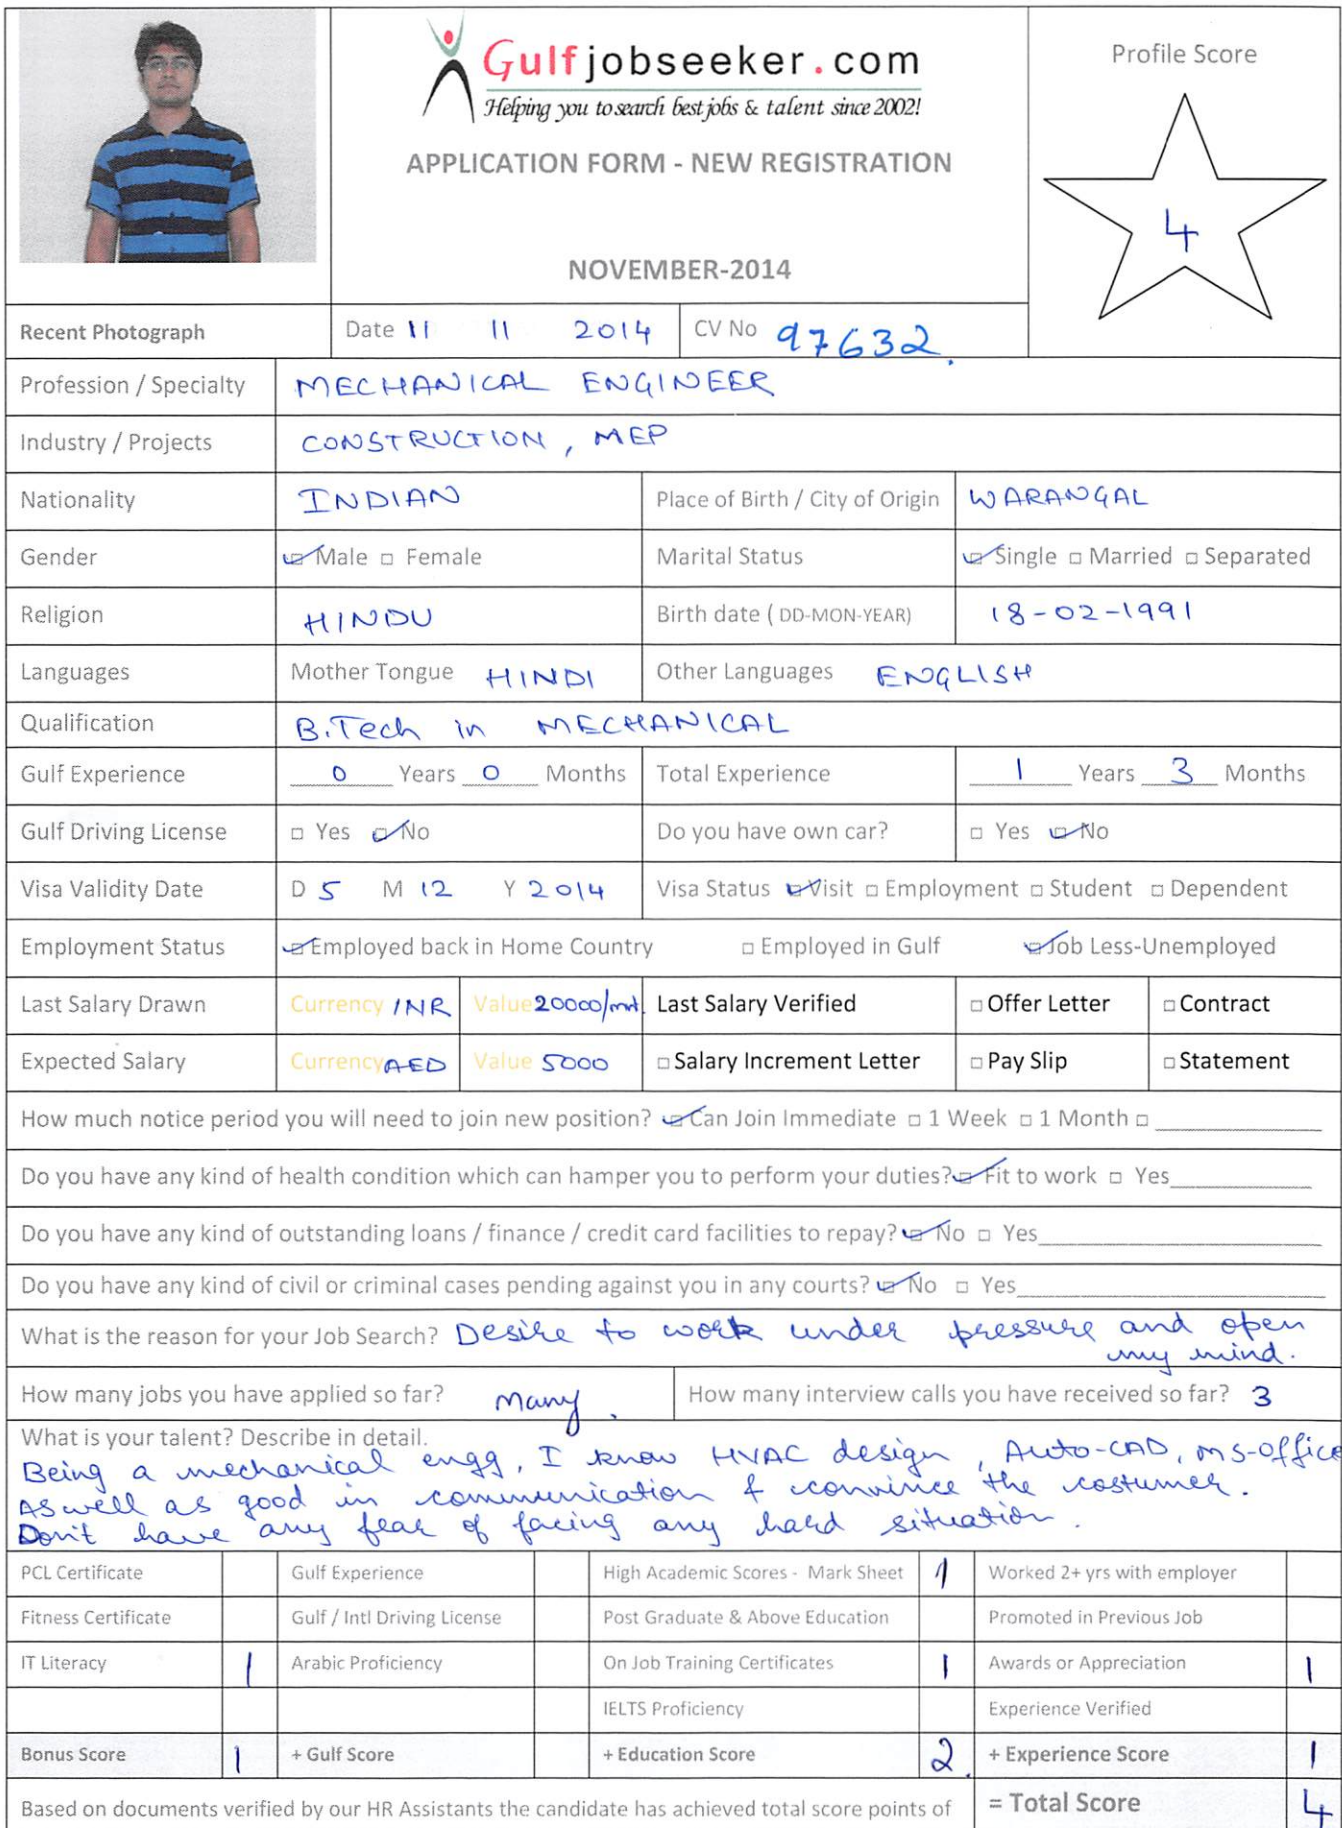 Gulfjobseeker.com
Helping you to search best jobs & talent since 2002!
APPLICATION FORM - NEW REGISTRATION
NOVEMBER-2014
Profile Score
4
Recent Photograph
Date 11 11 2014
CV No 97632.
Profession / Specialty MECHANICAL ENGINEER
Industry / Projects CONSTRUCTION, MEP
Nationality INDIAN Place of Birth / City of Origin WARANGAL
Gender Male Female Marital Status Single Married Separated
Religion HINDU Birth date ( DD-MON-YEAR) 18-02-1991
Languages Mother Tongue HINDI Other Languages ENGLISH
Qualification B.Tech in MECHANICAL
Gulf Experience 0 Years 0 Months Total Experience 1 Years 3 Months
Gulf Driving License Yes No Do you have own car? Yes No
Visa Validity Date D 5 M 12 Y 2014 Visa Status Visit Employment Student Dependent
Employment Status Employed back in Home Country Employed in Gulf Job Less-Unemployed
Last Salary Drawn Currency INR Value 20000/mnt. Last Salary Verified Offer Letter Contract
Expected Salary Currency AED Value 5000 Salary Increment Letter Pay Slip Statement
How much notice period you will need to join new position? Can Join Immediate 1 Week 1 Month
Do you have any kind of health condition which can hamper you to perform your duties? Fit to work Yes
Do you have any kind of outstanding loans / finance / credit card facilities to repay? No Yes
Do you have any kind of civil or criminal cases pending against you in any courts? No Yes
What is the reason for your Job Search? Desire to work under pressure and open
my mind.
How many jobs you have applied so far? Many. How many interview calls you have received so far? 3
What is your talent? Describe in detail.
Being a mechanical engg, I know HVAC design, Auto-CAD, MS-office
As well as good in communication & convince the costumer.
Don't have any fear of facing any hard situation.
PCL Certificate Gulf Experience High Academic Scores - Mark Sheet 1 Worked 2+ yrs with employer
Fitness Certificate Gulf / Intl Driving License Post Graduate & Above Education Promoted in Previous Job
IT Literacy 1 Arabic Proficiency On Job Training Certificates 1 Awards or Appreciation 1
IELTS Proficiency Experience Verified
Bonus Score 1 + Gulf Score + Education Score 2. + Experience Score 1
Based on documents verified by our HR Assistants the candidate has achieved total score points of = Total Score 4